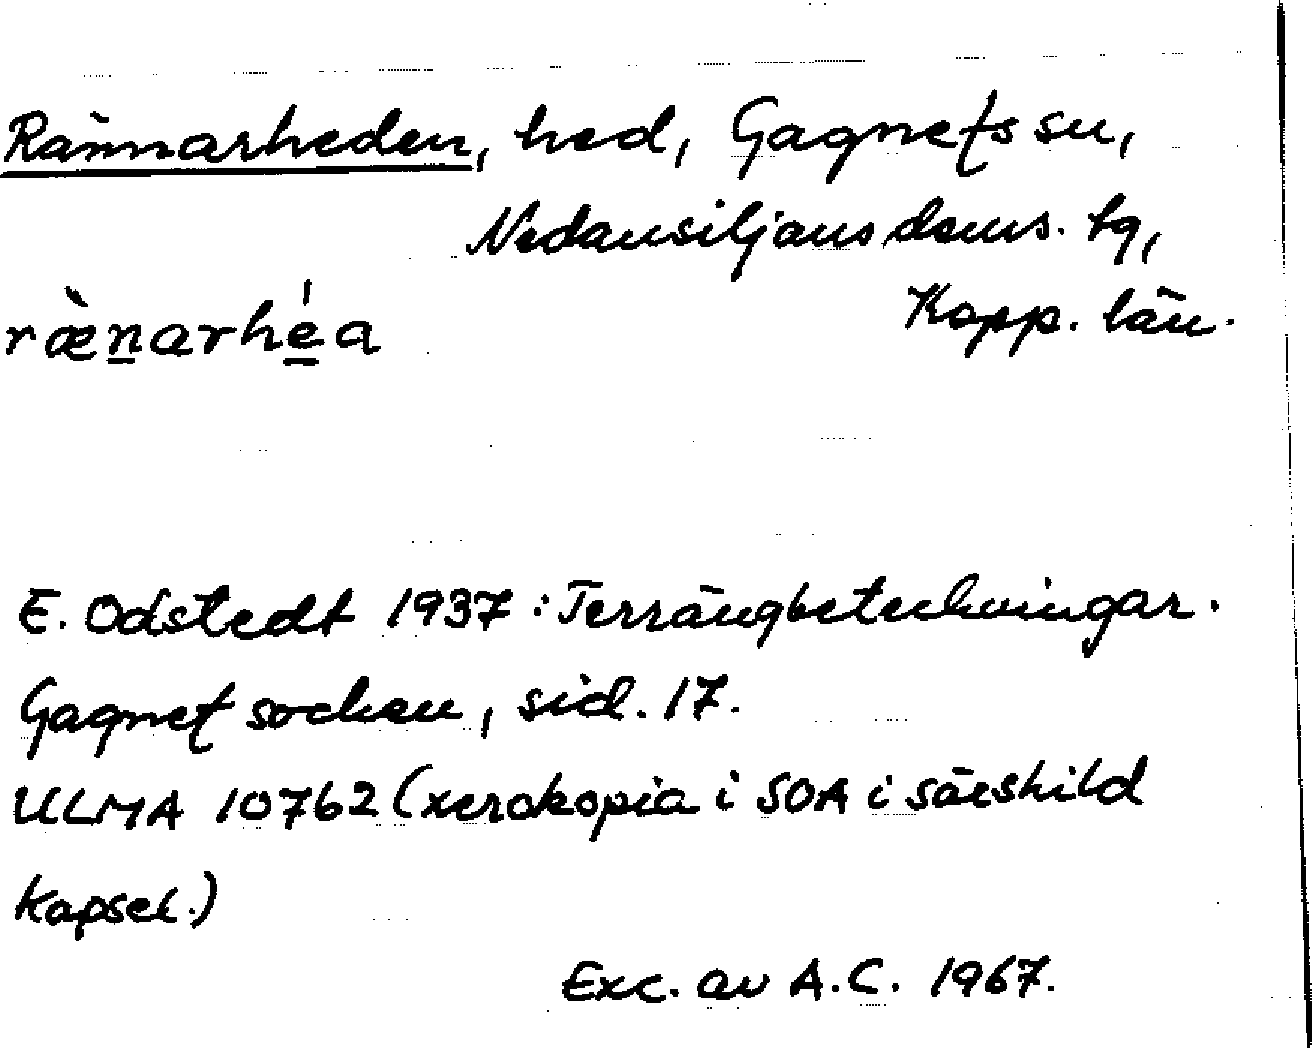 Rännarheden, hed, Gagnefs sn,
Nedansiljans doms. tg,
Kopp. län.
ræ̀narhéa
E. Odstedt 1937: Terrängbeteckningar.
Gagnef socken, sid. 17.
ULMA 10762 (xerokopia i SOA i särskild
kapsel.)
Exc. av A.C. 1967.